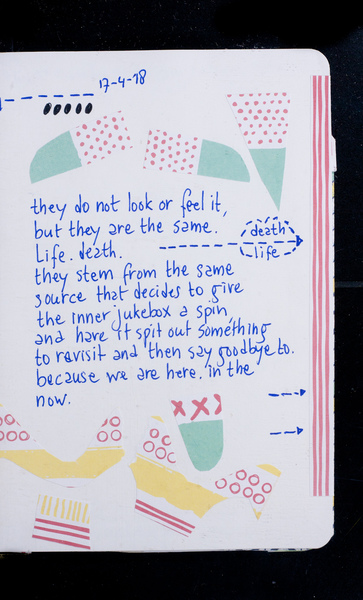 17-4-18
they do not look or feel it,
but they are the same.
Life. death.
death
life
they stem from the same
source that decides to give
the inner jukebox a spin,
and have it spit out something
to ravisit and then say goodbye to.
because we are here. in the
now.